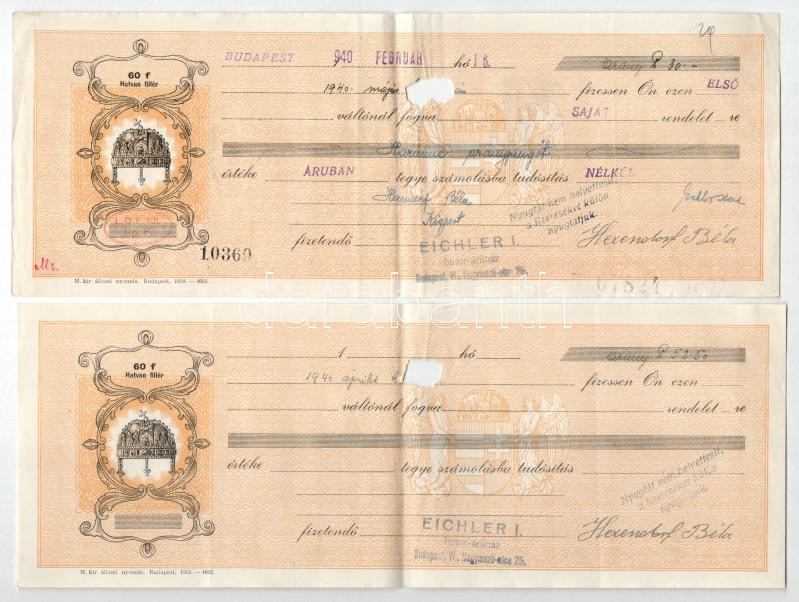 60 f
Hatvan fillér
BUDAPEST 940 FEBRUÁR hó 18.
Arany P 30.-
1940. május
fizessen Ön ezen ELSŐ
váltónál fogva SAJÁT rendelet re
értéke ÁRUBAN tegye számolásba tudósítás NÉLKÜL
Béla
Nyugtát nem helyettesít,
a fizetéseket külön
nyugtatjuk.
Kispest
fizetendő
EICHLER I.
butor-áruház
Budapest, VI., Nagymező-utca 25.
Hexendorf Béla
10369
Mr.
M. kir. állami nyomda. Budapest, 1939. — 4602.
darabanth
60 f
Hatvan fillér
1 hó
Arany P 52.50
1940 április
fizessen Ön ezen
váltónál fogva rendelet re
értéke tegye számolásba tudósítás
Nyugtát nem helyettesít,
a fizetéseket külön
nyugtatjuk.
fizetendő
EICHLER I.
butor-áruház
Budapest, VI., Nagymező-utca 25.
Hexendorf Béla
M. kir. állami nyomda. Budapest, 1939. — 4602.